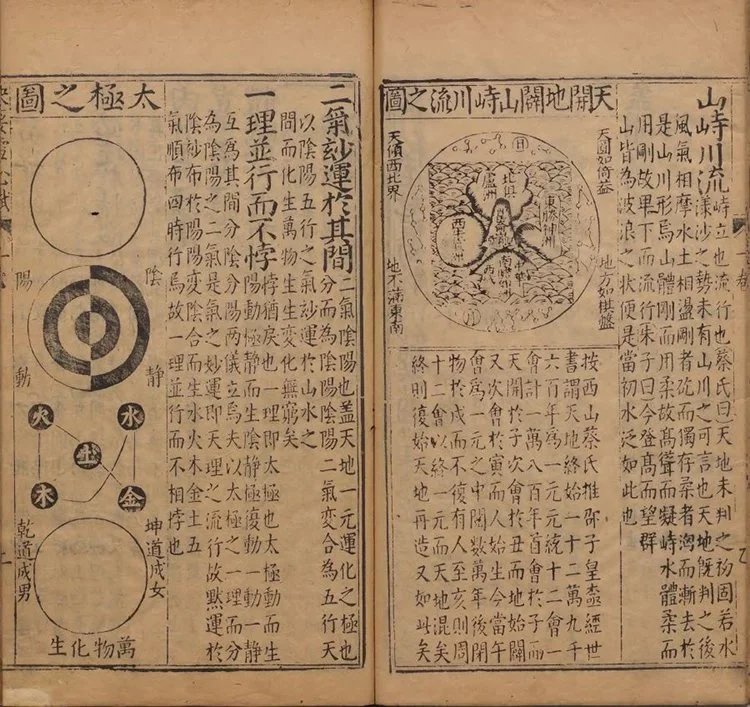 山峙川流
峙立也流行也蔡氏曰天地未判之初固若水
漾沙之勢未有山川之可言也天地既判之後
風氣相摩水土相盪剛者矻而獨存柔者淘而漸去於
是山川形焉山體剛而用柔故高聳而凝峙水體柔而
用剛故卑下而流行朱子曰今登高而望群
山皆為波浪之狀便是當初水泛如此也
天開地闢山峙川流之圖
天圓如倚蓋
地方如棋盤
日
東勝神洲
北俱
盧洲
天傾西北界
地不滿東南
按西山蔡氏推邵子皇極經世
書謂天地終始一十二萬九千
六百年為一元元統十二會一
會計一萬八百年首會於子而
天開於子次會於丑而地始闢
又次會於寅而人始生今當午
會為一元之中閱數萬年後閉
物於戌而不復有人至亥則周
十二會以終一元而天地混矣
終則復始天地再造又如此矣
二氣玅運於其間
二氣陰陽也蓋天地一元運化之極也
分而為陰陽二氣變合為五行天
以陰陽五行之氣玅運於山水之
間而化生萬物生生變化無窮矣
一理並行而不悖
悖猶戾也一理即太極也太極動而生
陽動極靜而生陰靜極復動一動一靜
互爲其間分陰分陽兩儀立焉夫以太極之一理而分
為陰陽之二氣是氣之妙運即天理之流行故默運於
陰玅布於陽陽變陰合而生水火木金土五
氣順布四時行焉故一理並行而不相悖也
太極之圖
陰
靜
陽
動
水
火
土
生
金
木
坤道成女
乾道成男
萬物化生